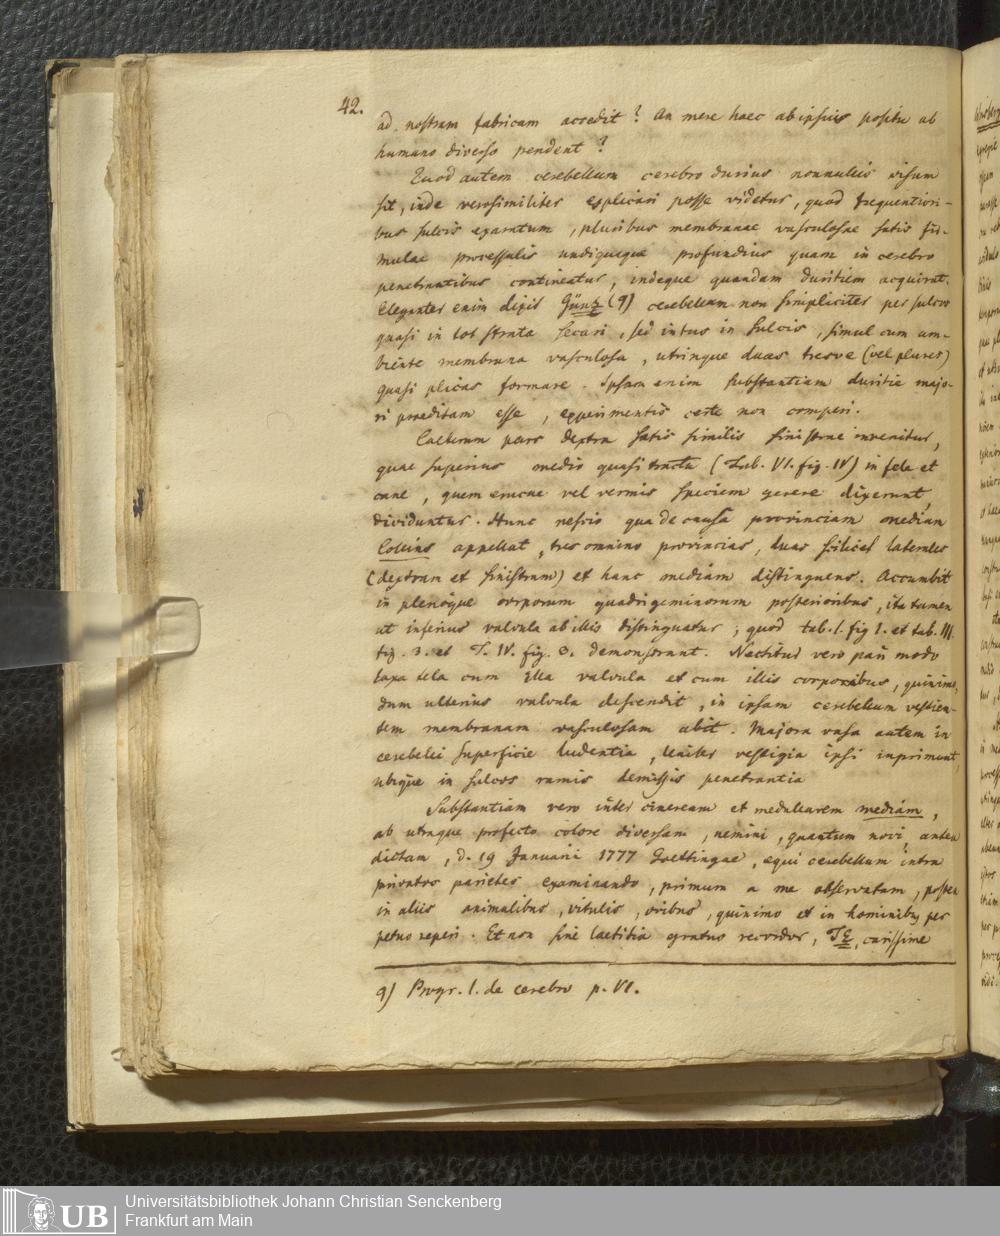 42.
ad nostram fabricam accedit? An mere haec ab ipsius positu ab
humano diverso pendent?
Quod autem cerebellum cerebro durius nonnullis visum
sit, inde verosimiliter explicari posse videtur, quod frequentiori-
bus sulcis exaratum, pluribus membranae vasculosae satis fir-
mulae processulis undiqueque profundius quam in cerebro
penetrantibus contineatur, indeque quandam duritiem acquirat.
Eleganter enim dixit Günz (q) cerebellum non simpliciter per sulcos
quasi in tot strata secari, sed intus in sulcis, simul cum am-
biente membrana vasculosa, utrinque duas tresve (vel plures)
quasi plicas formare. Ipsam enim substantiam duritie majo-
ri praeditam esse, experimentis certe non comperi.
Caeterum pars dextra satis similis sinistrae invenitur,
quae superius medio quasi tractu (Tab. VI. fig. IV) in fele et
cane, quem erucae vel vermis speciem gerere dixerunt,
dividuntur. Hunc nescio qua de causa provinciam mediam
Collins appellat, tres omnino provincias, duas scilicet laterales
(dextram et sinistram) et hanc mediam distinguens. Accumbit
in plerisque corporum quadrigeminorum posterioribus, ita tamen
ut inferius valvula ab illis distinguatur; quod tab. I. fig I. et tab. III.
fig. 3. et T. IV. fig. 3. demonstrant. Nectitur vero pari modo
laxa tela cum illa valvula et cum illis corporibus, quinimo,
dum ulterius valvula descendit, in ipsam cerebellum vestien-
tem membranam vasculosam abit. Majora vasa autem in
cerebelli superficie ludentia, leniter vestigia ipsi inprimunt,
ubique in sulcos ramis demissis penetrantia
Substantiam vero inter cineream et medullarem mediam,
ab utraque profecto colore diversam, nemini, quantum novi, antea
dictam, d. 19 Januarii 1777 Goettingae, equi cerebellum intra
privatos parietes examinando, primum a me observatam, postea
in aliis animalibus, vitulis, ovibus, quinimo et in hominibus per
petuo reperi. Et non sine laetitia gratus recordor, TE, carissime
q) Progr. I. de cerebro p. VI.
Universitätsbibliothek Johann Christian Senckenberg
Frankfurt am Main
UB